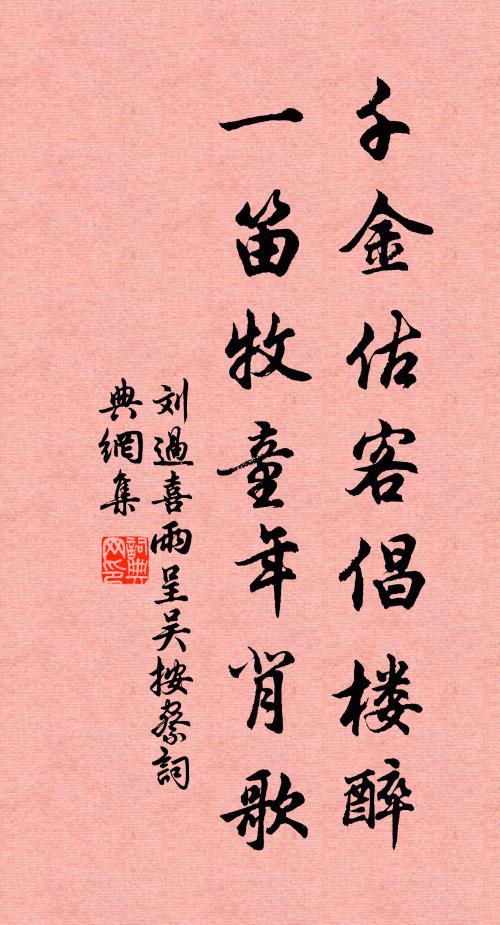 千金估客倡楼醉
一笛牧童年背歌
刘過喜雨呈吴按察詞
典網集
詞典网印